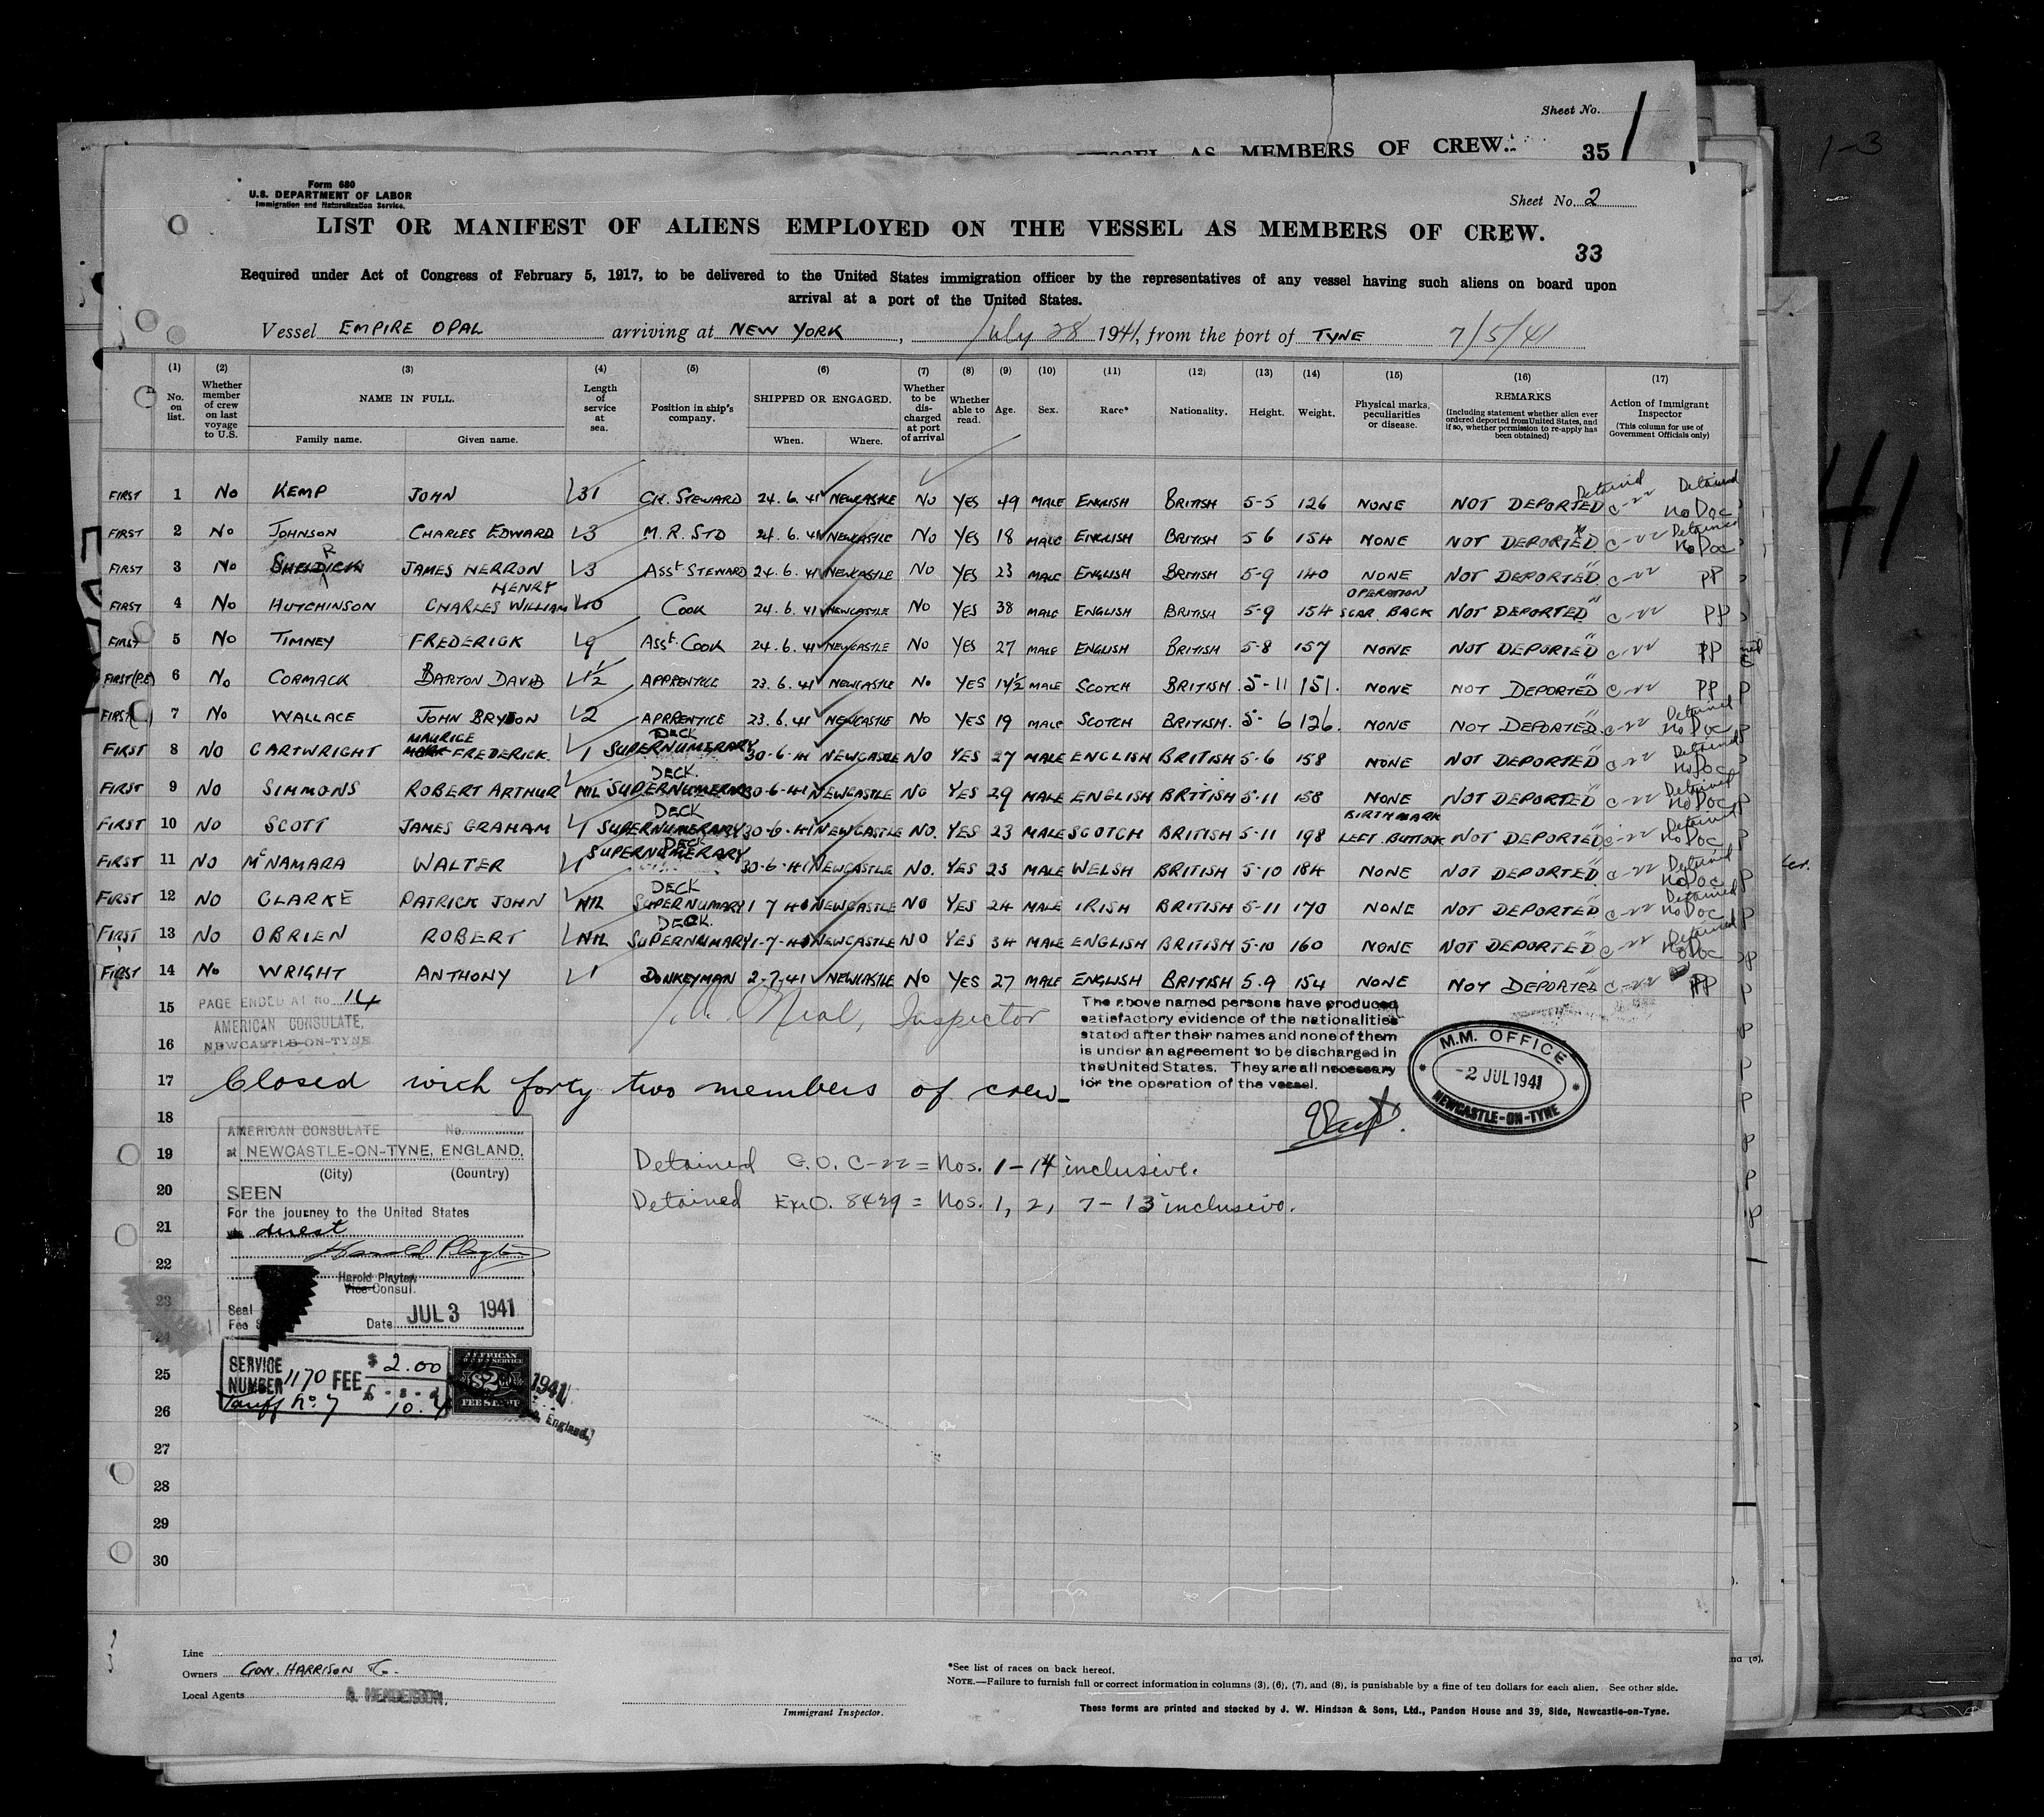 Sheet No.
AS MEMBERS OF CREW.
35
1-3
41
Form 680
U.S. DEPARTMENT OF LABOR
Immigration and Naturalization Service.
Sheet No. 2
LIST OR MANIFEST OF ALIENS EMPLOYED ON THE VESSEL AS MEMBERS OF CREW.
33
Required under Act of Congress of February 5, 1917, to be delivered to the United States immigration officer by the representatives of any vessel having such aliens on board upon
arrival at a port of the United States.
Vessel EMPIRE OPAL arriving at NEW YORK, July 28 1941, from the port of TYNE 7/5/41
(1) (2) (3) (4) (5) (6) (7) (8) (9) (10) (11) (12) (13) (14) (15) (16) (17)
No. on list.
Whether member of crew on last voyage to U.S.
NAME IN FULL.
Family name. Given name.
Length of service at sea.
Position in ship's company.
SHIPPED OR ENGAGED.
When. Where.
Whether to be discharged at port of arrival
Whether able to read.
Age.
Sex.
Race*
Nationality.
Height.
Weight.
Physical marks, peculiarities or disease.
REMARKS
(Including statement whether alien ever ordered deported from United States, and if so, whether permission to re-apply has been obtained)
Action of Immigrant Inspector
(This column for use of Government Officials only)
FIRST 1 NO KEMP JOHN 31 CH. STEWARD 24.6.41 NEWCASTLE NO YES 49 MALE ENGLISH BRITISH 5-5 126 NONE NOT DEPORTED Detained C-22 Detained no Doc
FIRST 2 NO JOHNSON CHARLES EDWARD 3 M.R. STD 24.6.41 NEWCASTLE NO YES 18 MALE ENGLISH BRITISH 5 6 154 NONE NOT DEPORTED " C-22 Detained no Doc
FIRST 3 NO JAMES HERRON 3 ASST STEWARD 24.6.41 NEWCASTLE NO YES 23 MALE ENGLISH BRITISH 5-9 140 NONE NOT DEPORTED " C-22 PP
FIRST 4 NO HUTCHINSON HENRY CHARLES WILLIAM COOK 24.6.41 NEWCASTLE NO YES 38 MALE ENGLISH BRITISH 5-9 154 OPERATION SCAR BACK NOT DEPORTED " C-22 PP
FIRST 5 NO TIMNEY FREDERICK 9 ASST. COOK 24.6.41 NEWCASTLE NO YES 27 MALE ENGLISH BRITISH 5-8 157 NONE NOT DEPORTED " C-22 PP
FIRST (P.E) 6 NO CORMACK BARTON DAVID 1½ APPRENTICE 23.6.41 NEWCASTLE NO YES MALE SCOTCH BRITISH 5-11 151. NONE NOT DEPORTED " C-22 PP
FIRST 7 NO WALLACE JOHN BRYDON 2 APPRENTICE 23.6.41 NEWCASTLE NO YES 19 MALE SCOTCH BRITISH. 5-6 126. NONE NOT DEPORTED " C-22 Detained no Doc
FIRST 8 NO CARTWRIGHT MAURICE FREDERICK. 1 DECK SUPERNUMERARY 30-6-41 NEWCASTLE NO YES 27 MALE ENGLISH BRITISH 5-6 158 NONE NOT DEPORTED " C-22 Detained no Doc
FIRST 9 NO SIMMONS ROBERT ARTHUR NIL DECK. SUPERNUMERARY 30-6-41 NEWCASTLE NO YES 29 MALE ENGLISH BRITISH 5-11 158 NONE NOT DEPORTED " C-22 Detained no Doc
FIRST 10 NO SCOTT JAMES GRAHAM 1 DECK SUPERNUMERARY 30-6-41 NEWCASTLE NO. YES 23 MALE SCOTCH BRITISH 5-11 198 BIRTHMARK LEFT BUTTOCK NOT DEPORTED " C-22 Detained no Doc
FIRST 11 NO McNAMARA WALTER 1 DECK SUPERNUMERARY 30-6-41 NEWCASTLE NO. YES 25 MALE WELSH BRITISH 5-10 184 NONE NOT DEPORTED " C-22 Detained no Doc
FIRST 12 NO CLARKE PATRICK JOHN NIL DECK SUPERNUMARY 1 7 41 NEWCASTLE NO YES 24 MALE IRISH BRITISH 5-11 170 NONE NOT DEPORTED " C-22 Detained no Doc
FIRST 13 NO OBRIEN ROBERT NIL DECK. SUPERNUMARY 1-7-41 NEWCASTLE NO YES 34 MALE ENGLISH BRITISH 5-10 160 NONE NOT DEPORTED " C-22 Detained no Doc
FIRST 14 NO WRIGHT ANTHONY 1 DONKEYMAN 2-7-41 NEWCASTLE NO YES 27 MALE ENGLISH BRITISH 5.9 154 NONE NOT DEPORTED C-22 PP
15 PAGE ENDED AT NO. 14
AMERICAN CONSULATE,
NEWCASTLE-ON-TYNE
Inspector
The above named persons have produced
satisfactory evidence of the nationalities
stated after their names and none of them
is under an agreement to be discharged in
the United States. They are all necessary
for the operation of the vessel.
M.M. OFFICE
-2 JUL 1941
NEWCASTLE-ON-TYNE
16
17 Closed with forty two members of crew
18
AMERICAN CONSULATE No.
at NEWCASTLE-ON-TYNE, ENGLAND.
(City) (Country)
SEEN
For the journey to the United States
direct
Harold Playter
Vice Consul.
Seal
Fee
Date JUL 3 1941
19 Detained G.O. C-22 = Nos. 1-14 inclusive.
20 Detained Ex.O. 8429 = Nos. 1, 2, 7-13 inclusive.
21
22
23
24
25
26
27
28
29
30
SERVICE NUMBER 1170 FEE $ 2.00
Tariff No. 7 £ - s - d
10.
AMERICAN
$2
FEE STAMP
1941
England.
Line
Owners GOW. HARRISON & Co.
Local Agents A. HENDERSON.
Immigrant Inspector.
*See list of races on back hereof.
NOTE.—Failure to furnish full or correct information in columns (3), (6), (7), and (8), is punishable by a fine of ten dollars for each alien. See other side.
These forms are printed and stocked by J. W. Hindson & Sons, Ltd., Pandon House and 39, Side, Newcastle-on-Tyne.